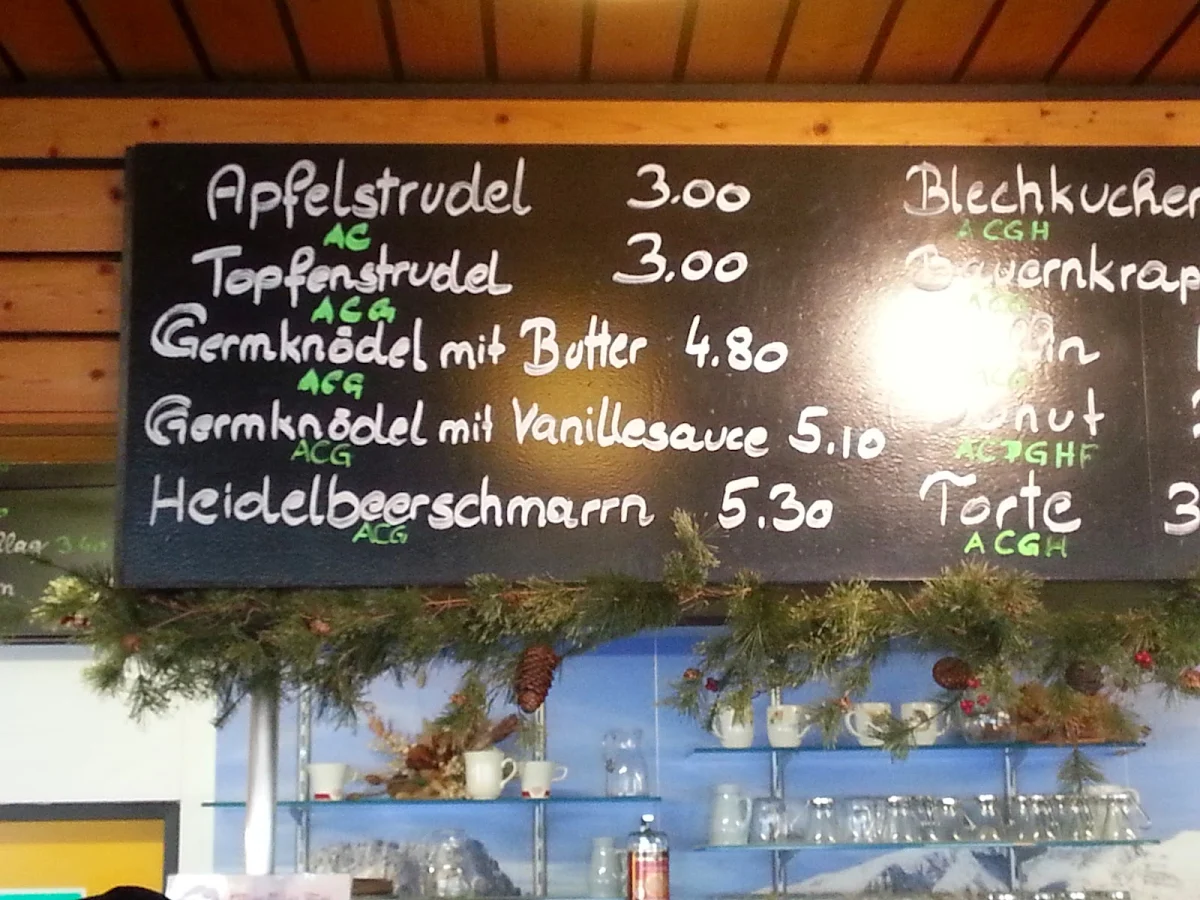 Apfelstrudel 3.00
AC
Topfenstrudel 3.00
ACG
Germknödel mit Butter 4.80
ACG
Germknödel mit Vanillesauce 5.10
ACG
Heidelbeerschmarrn 5.30
ACG
Blechkuchen
ACGH
Bauernkrap
Torte 3
ACGH